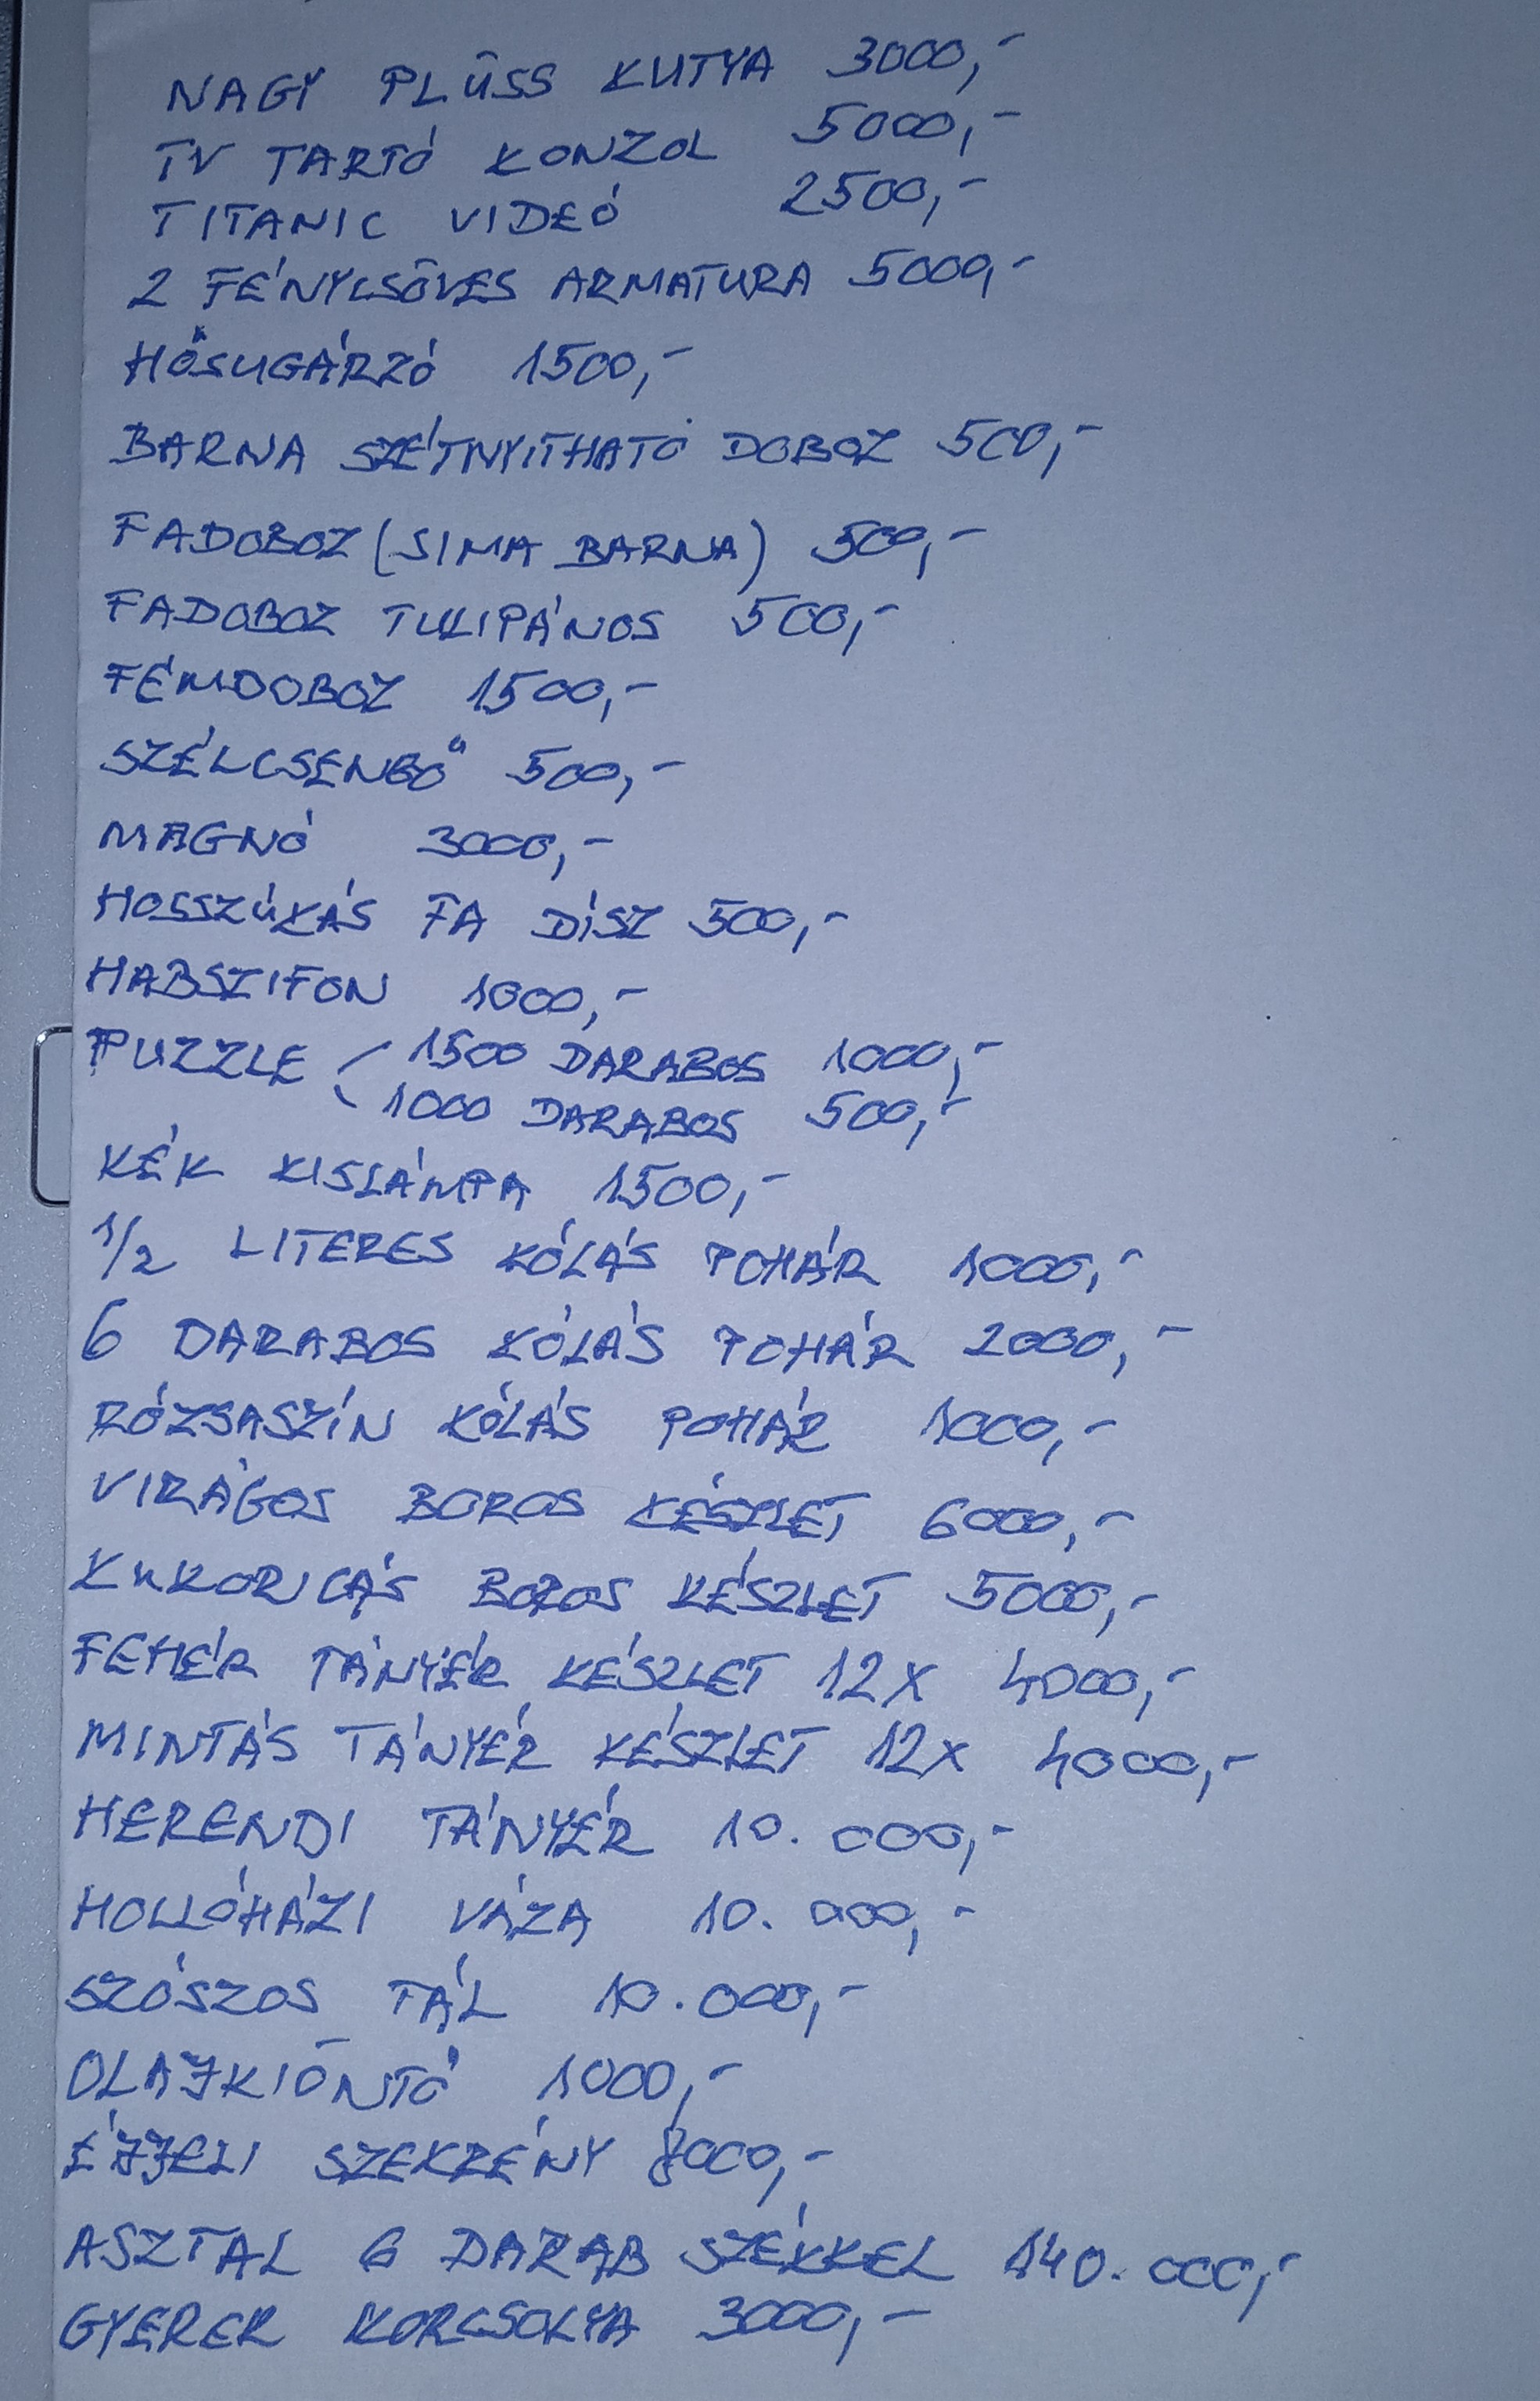 NAGY PLÜSS KUTYA 3000,-
TV TARTÓ KONZOL 5000,-
TITANIC VIDEÓ 2500,-
2 FÉNYCSÖVES ARMATURA 5000,-
HŐSUGÁRZÓ 1500,-
BARNA SZÉTNYITHATÓ DOBOZ 500,-
FADOBOZ (SIMA BARNA) 500,-
FADOBOZ TULIPÁNOS 500,-
FÉMDOBOZ 1500,-
SZÉLCSENGŐ 500,-
MAGNÓ 3000,-
HOSSZÚKÁS FA DÍSZ 500,-
HABSZIFON 1000,-
PUZZLE 1500 DARABOS 1000,-
1000 DARABOS 500,-
KÉK KISLÁMPA 1500,-
1/2 LITERES KÓLÁS POHÁR 1000,-
6 DARABOS KÓLÁS POHÁR 2000,-
RÓZSASZÍN KÓLÁS POHÁR 1000,-
VIRÁGOS BOROS KÉSZLET 6000,-
KUKORICÁS BOROS KÉSZLET 5000,-
FEHÉR TÁNYÉR KÉSZLET 12X 4000,-
MINTÁS TÁNYÉR KÉSZLET 12X 4000,-
HERENDI TÁNYÉR 10.000,-
HOLLÓHÁZI VÁZA 10.000,-
SZÓSZOS TÁL 10.000,-
OLAJKIÖNTŐ 1000,-
ÉJJELI SZEKRÉNY 8000,-
ASZTAL 6 DARAB SZÉKKEL 140.000,-
GYEREK KORCSOLYA 3000,-